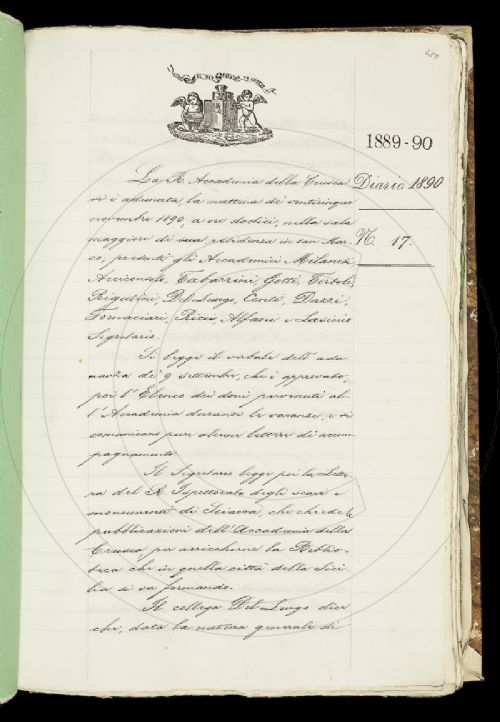 1889-90
Diario 1890
N. 17.
La R. Accademia della Crusca
si è adunata la mattina de' venticinque
novembre 1890, a ore dodici, nella sala
maggiore di sua residenza in San Mar-
co, presenti gli Accademici Milanesi,
Arciconsolo, Tabarrini, Gotti, Tortoli,
Rigutini, Del Lungo, Conti, Dazzi,
Fornaciari, Ricci, Alfani e Lasinio
Segretario.
Si legge il verbale dell'adu
nanza de' 9 settembre, che è approvato,
poi l'Elenco dei doni pervenuti al-
l'Accademia durante le vacanze, e si
comunicano pure alcune lettere di accom
pagnamento.
Il Segretario legge poi la Lette-
ra del R. Ispettorato degli scavi e
monumenti di Sciacca, che chiede le
pubblicazioni dell'Accademia della
Crusca, per arricchirne la Biblio-
teca che in quella città della Sici
lia si va formando.
Il collega Del Lungo dice
che, data la natura generale di